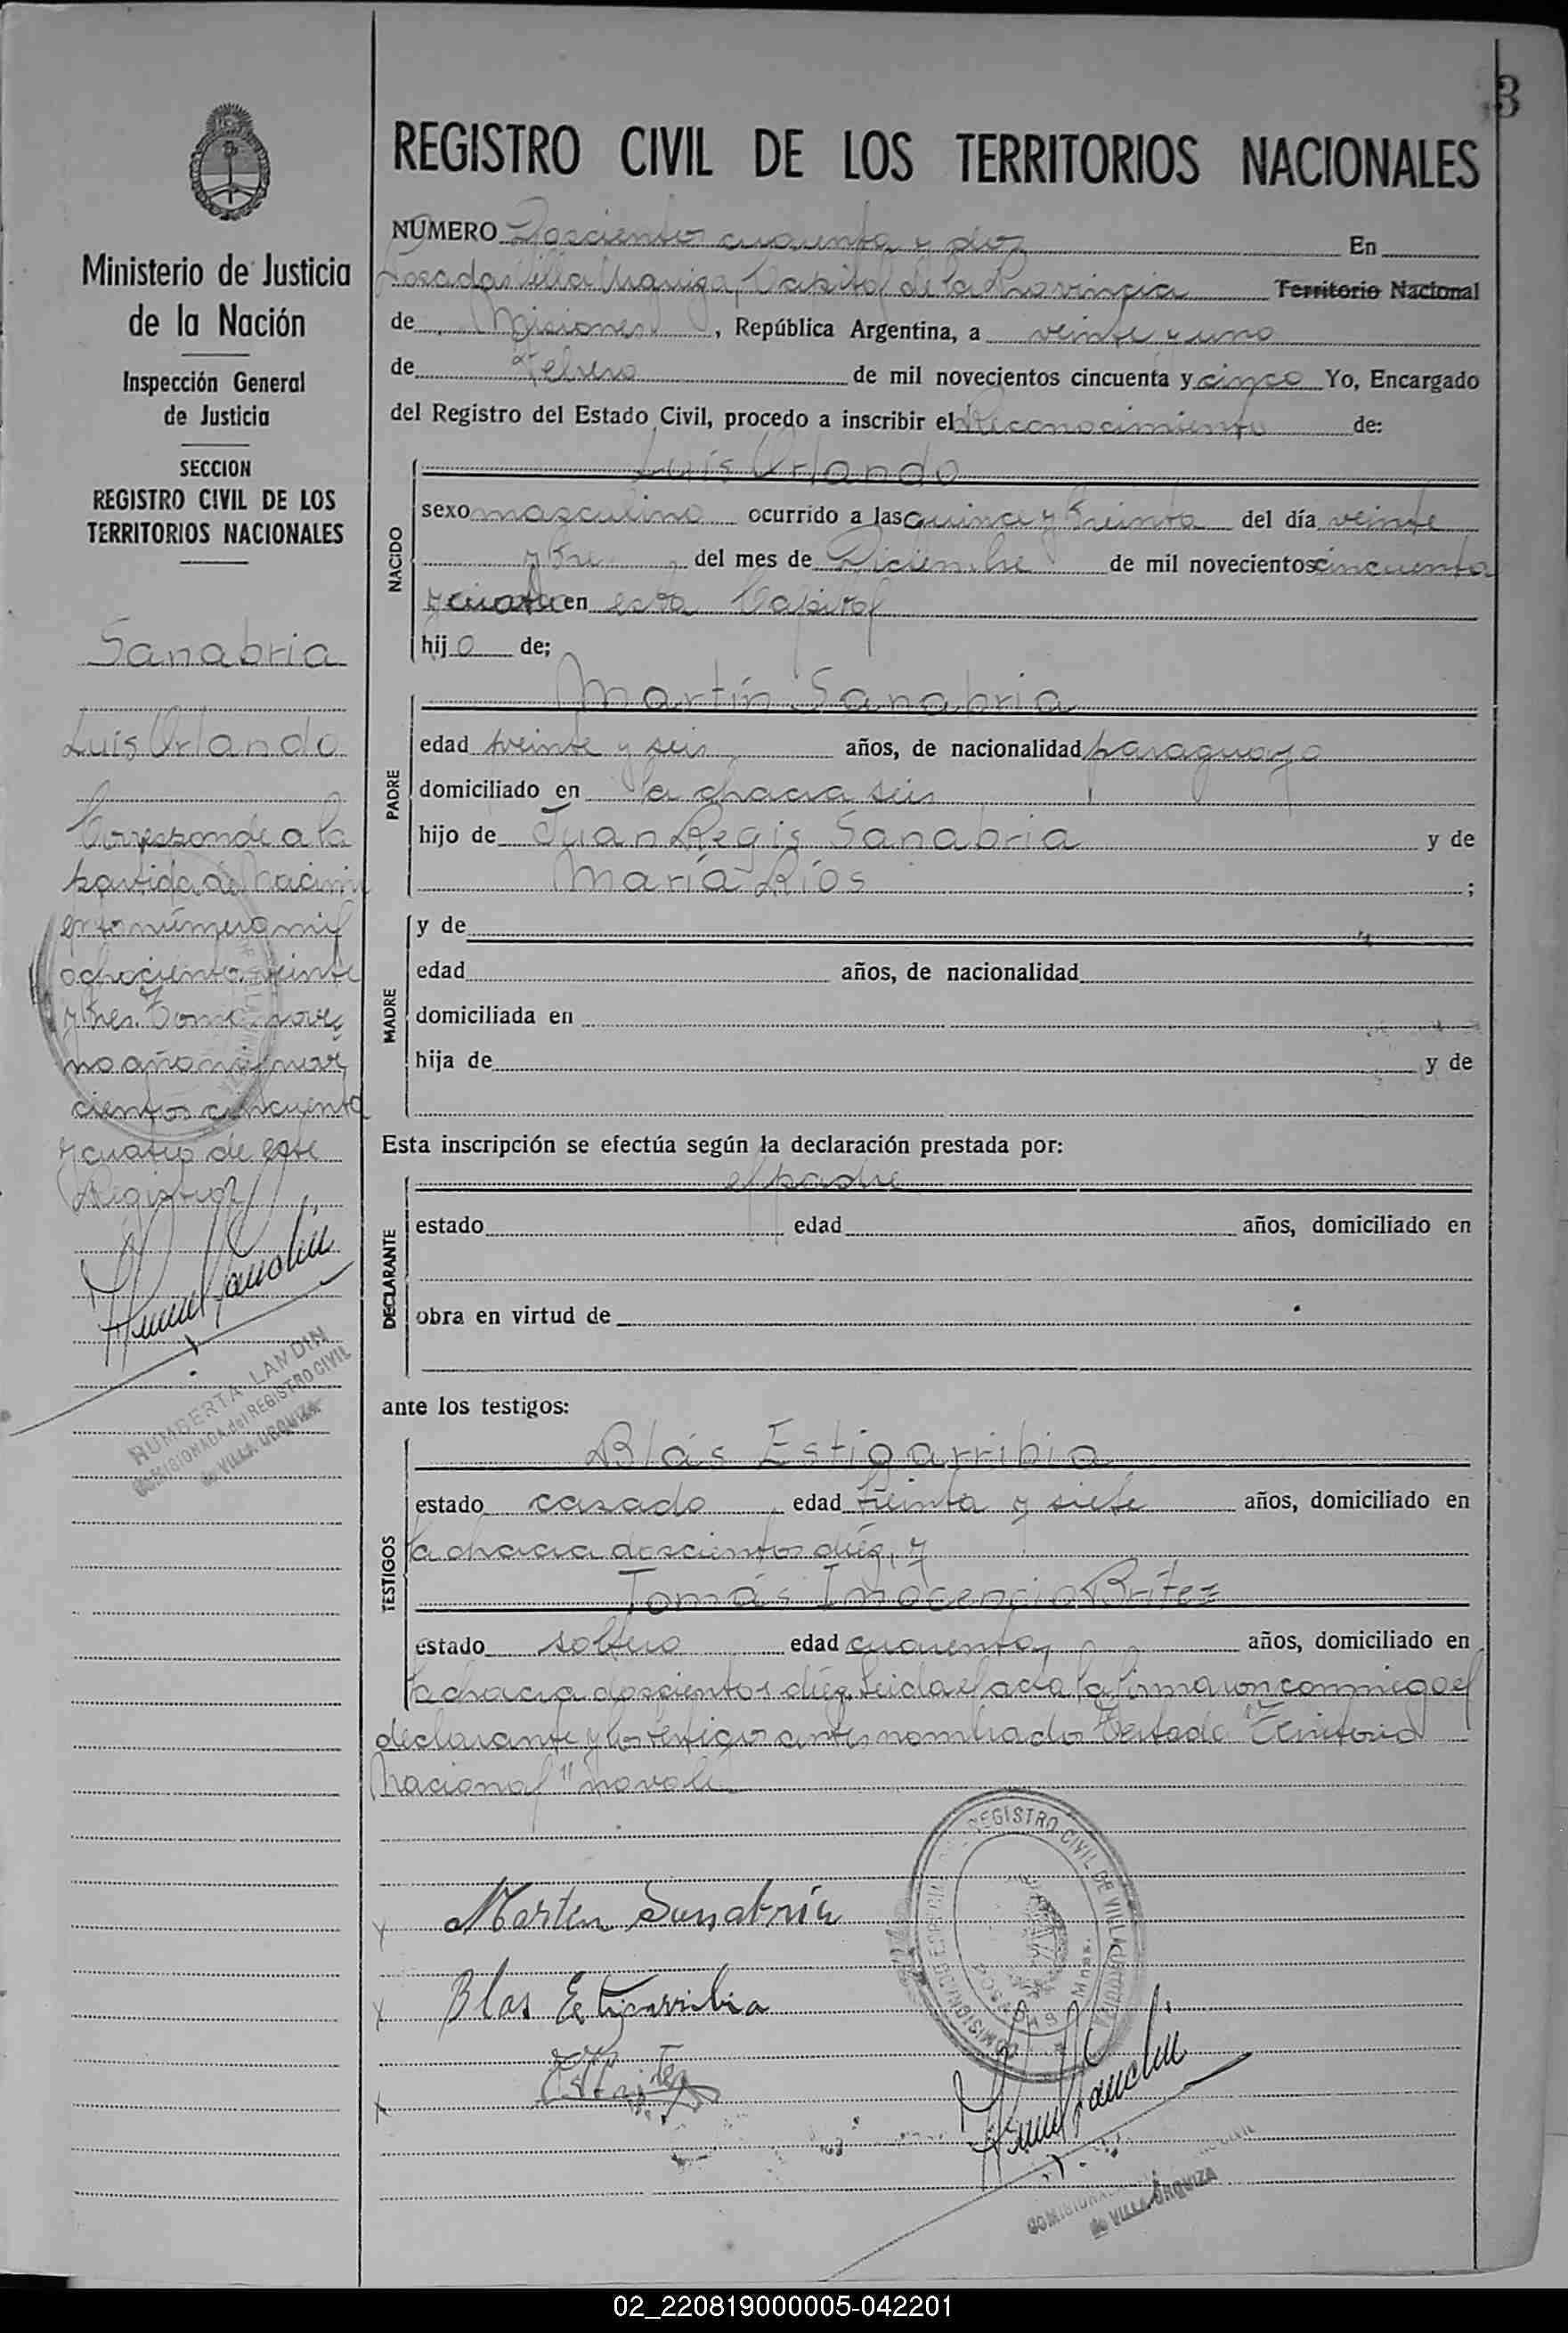 3
Ministerio de Justicia
de la Nación
Inspección General
de Justicia
SECCION
REGISTRO CIVIL DE LOS
TERRITORIOS NACIONALES
Sanabria
Luis Orlando
Corresponde a la
partida de nacimi
ento número mil
ochociento veinte
y tres. Tomo nove
no año mil nove
cientos cincuenta
y cuatro de este
Registro
HUMBERTA LANDIN
COMISIONADA del REGISTRO CIVIL
de VILLA URQUIZA
REGISTRO CIVIL DE LOS TERRITORIOS NACIONALES
NUMERO Doscientos cuarenta y dos En
Posadas Villa Urquiza, Capital de la Provincia Territorio Nacional
de Misiones, República Argentina, a veinte y uno
de Febrero de mil novecientos cincuenta y cinco Yo, Encargado
del Registro del Estado Civil, procedo a inscribir el Reconocimiento de:
NACIDO
Luis Orlando
sexo masculino ocurrido a las quince y treinta del día veinte
y tres del mes de Diciembre de mil novecientos cincuenta
y cuatro en esta Capital
hijo de;
PADRE
Martín Sanabria
edad treinta y seis años, de nacionalidad paraguayo
domiciliado en la chacra seis
hijo de Juan Regis Sanabria y de
María Ríos ;
MADRE
y de
edad años, de nacionalidad
domiciliada en
hija de y de
Esta inscripción se efectúa según la declaración prestada por:
DECLARANTE
el padre
estado edad años, domiciliado en
obra en virtud de
ante los testigos:
TESTIGOS
Blás Estigarribia
estado casado edad treinta y siete años, domiciliado en
la chacra doscientos diéz, y
Tomás Inocencio Britez
estado soltero edad cuarenta años, domiciliado en
la chacra doscientos diéz. Leida el acta la firmaron conmigo el
declarante y los testigos antes nombrados Testado "Territorio
Nacional" no vale
Martin Sanabria
Blas Estigarribia
REGISTRO CIVIL DE VILLA URQUIZA
POSADAS Mnes.
de VILLA URQUIZA
02_220819000005-042201